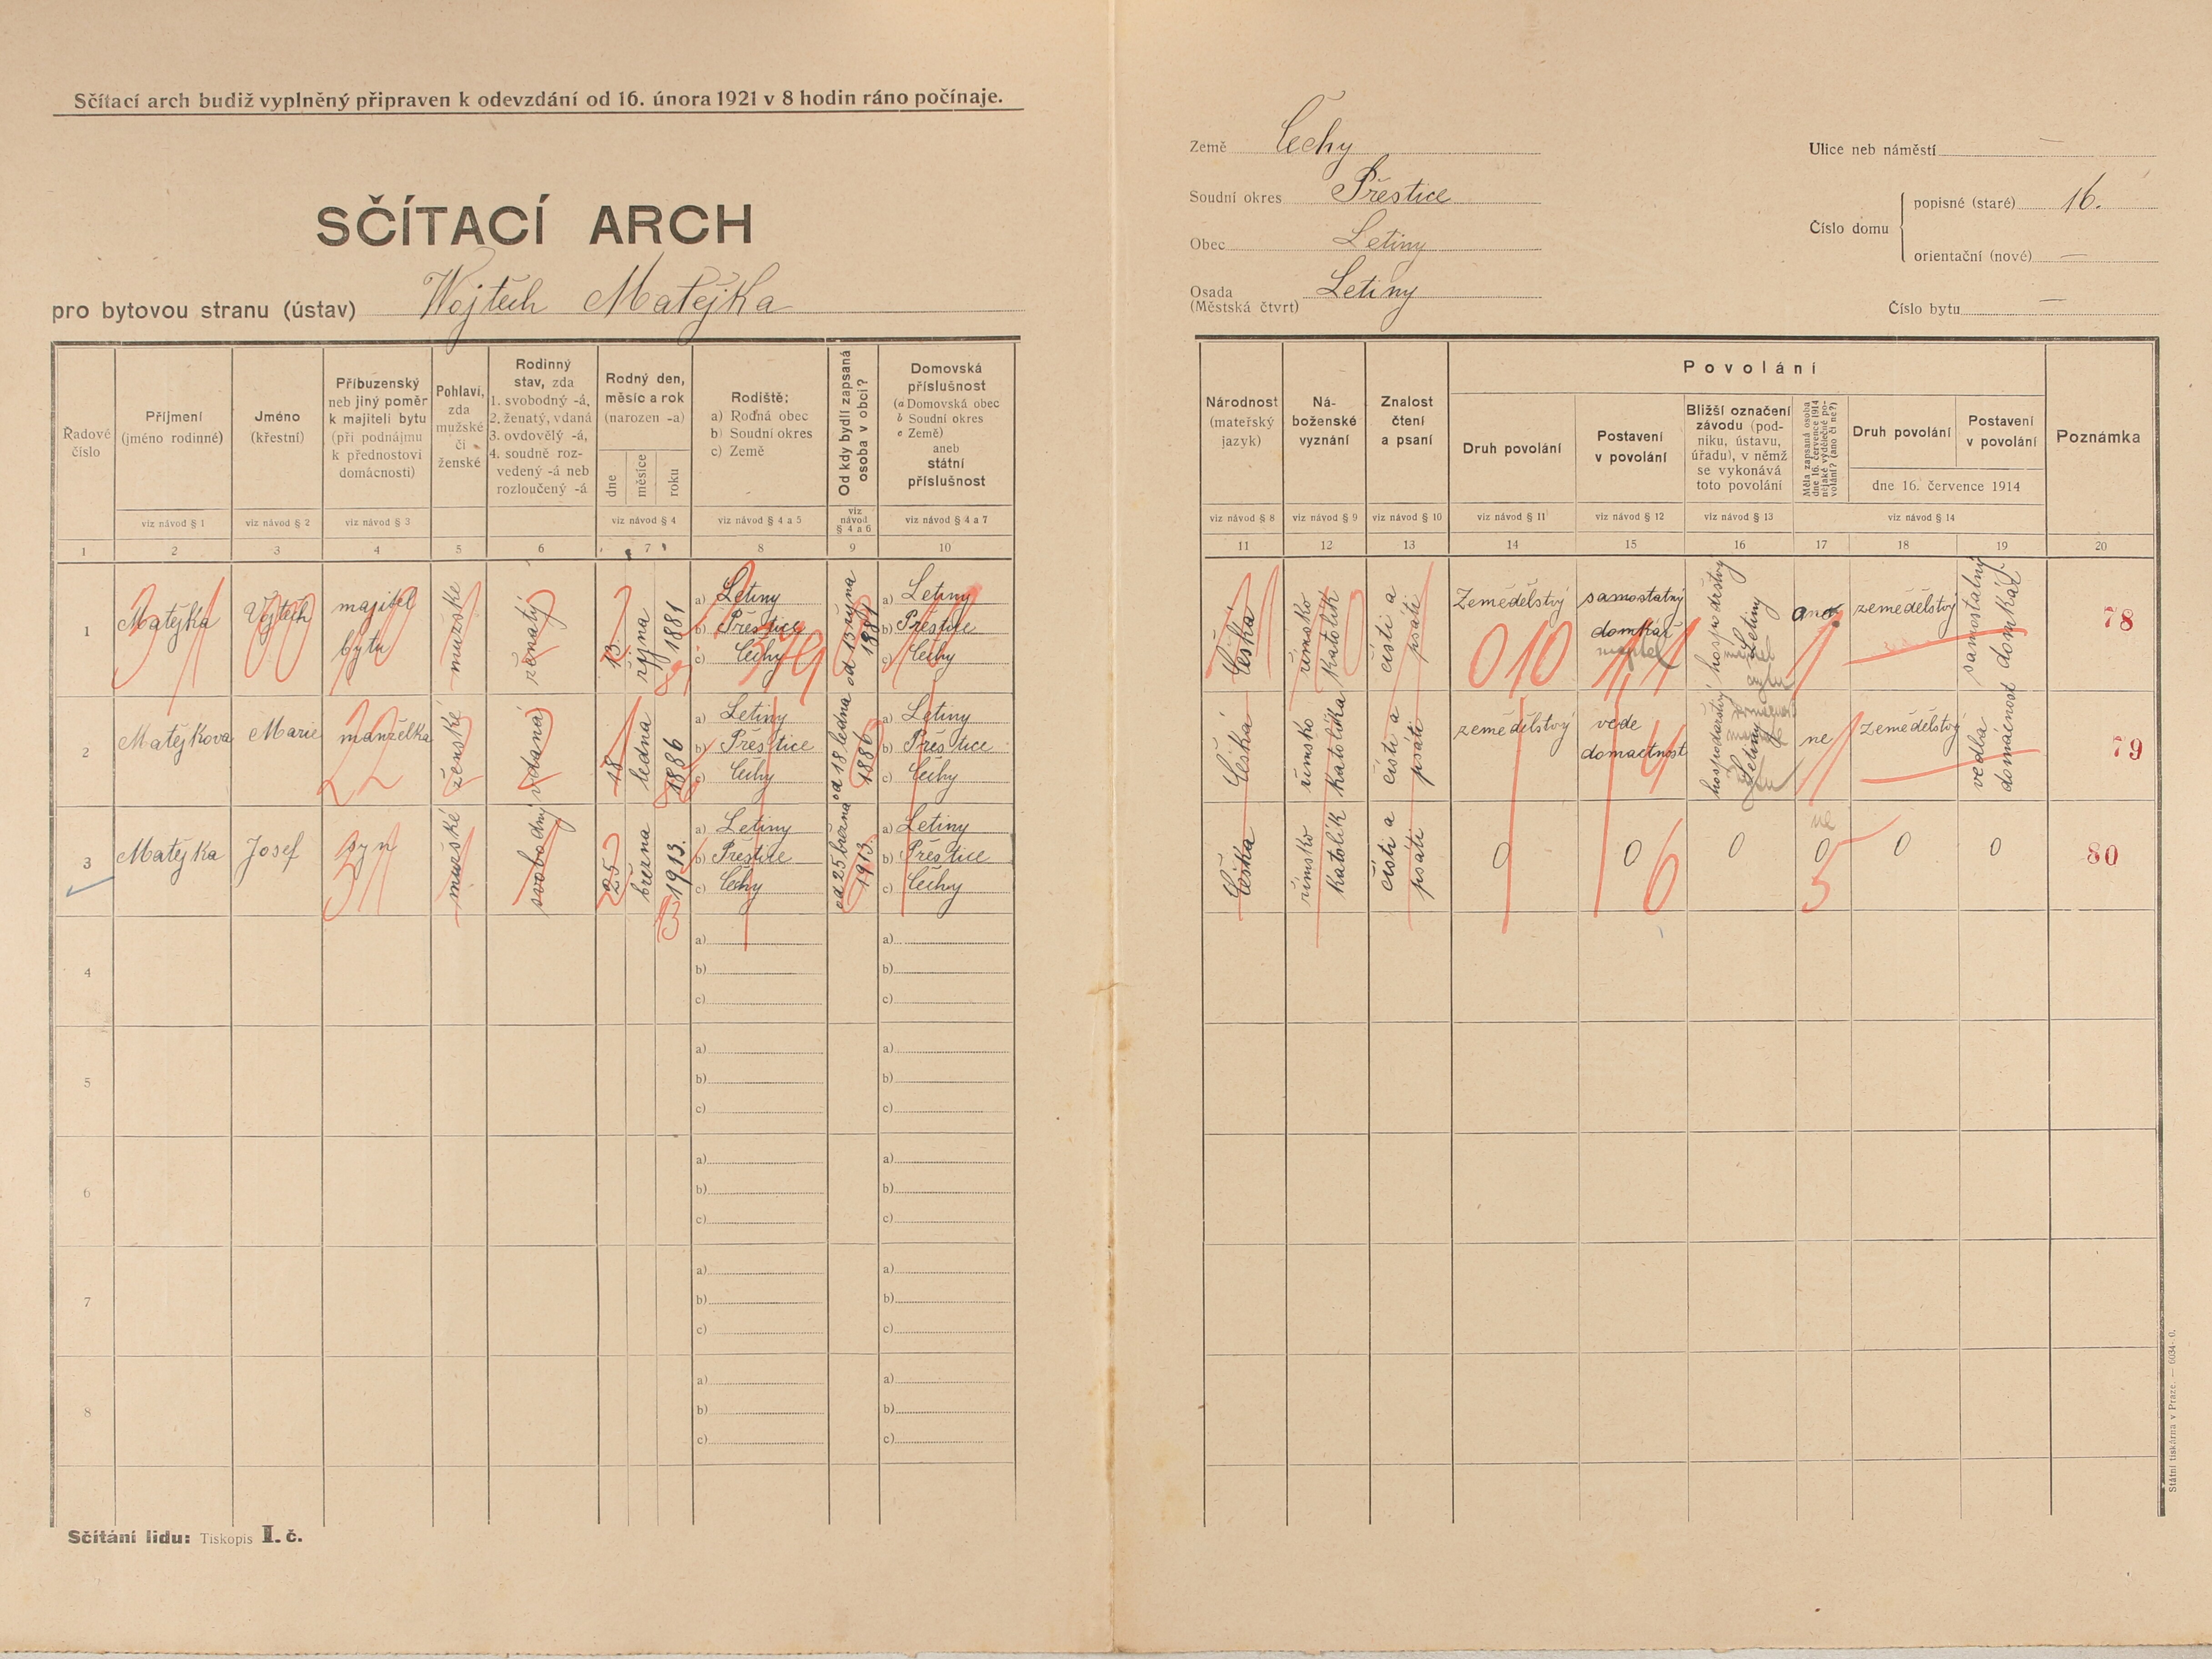 Sčítací arch budiž vyplněný připraven k odevzdání od 16. února 1921 v 8 hodin ráno počínaje.
SČÍTACÍ ARCH
pro bytovou stranu (ústav) Wojtěch Matějka
Země Čechy
Soudní okres Přestice
Obec Letiny
Osada Letiny
(Městská čtvrt)
Ulice neb náměstí —
Číslo domu
popisné (staré) 16.
orientační (nové) —
Číslo bytu —
Řadové číslo
Příjmení
(jméno rodinné)
Jméno
(křestní)
Příbuzenský
neb jiný poměr
k majiteli bytu
(při podnájmu
k přednostovi
domácnosti)
Pohlaví,
zda
mužské
či
ženské
Rodinný
stav, zda
1. svobodný -á,
2. ženatý, vdaná
3. ovdovělý -á,
4. soudně roz-
vedený -á neb
rozloučený -á
Rodný den,
měsíc a rok
(narozen -a)
dne
měsíce
roku
Rodiště:
a) Rodná obec
b) Soudní okres
c) Země
Od kdy bydlí zapsaná
osoba v obci?
Domovská
příslušnost
(a Domovská obec
b Soudní okres
c Země)
aneb
státní
příslušnost
viz návod § 1
viz návod § 2
viz návod § 3
viz návod § 4
viz návod § 4 a 5
viz
návod
§ 4 a 6
viz návod § 4 a 7
1 2 3 4 5 6 7 8 9 10
1 Matějka Vojtěch majitel bytu mužské ženatý 13 října 1881
a) Letiny
b) Přestice
c) Čechy
od 13 října 1881
a) Letiny
b) Přestice
c) Čechy
2 Matějkova Marie manželka ženské vdaná 18 ledna 1886
a) Letiny
b) Přestice
c) Čechy
od 18 ledna 1886
a) Letiny
b) Přestice
c) Čechy
3 Matějka Josef syn mužské svobodný 25 března 1913.
a) Letiny
b) Přestice
c) Čechy
od 25 března 1913.
a) Letiny
b) Přestice
c) Čechy
4
a)
b)
c)
a)
b)
c)
5
a)
b)
c)
a)
b)
c)
6
a)
b)
c)
a)
b)
c)
7
a)
b)
c)
a)
b)
c)
8
a)
b)
c)
a)
b)
c)
Sčítání lidu: Tiskopis I. č.
Národnost
(mateřský
jazyk)
Ná-
boženské
vyznání
Znalost
čtení
a psaní
Povolání
Druh povolání
Postavení
v povolání
Bližší označení
závodu (pod-
niku, ústavu,
úřadu), v němž
se vykonává
toto povolání
Měla zapsaná osoba
dne 16. července 1914
nějaké výdělečné po-
volání? (ano či ne?)
Druh povolání
Postavení
v povolání
dne 16. července 1914
Poznámka
viz návod § 8
viz návod § 9
viz návod § 10
viz návod § 11
viz návod § 12
viz návod § 13
viz návod § 14
11 12 13 14 15 16 17 18 19 20
Česká římsko katolík čísti a psáti Zemědělstvý samostatný domkář hospodrstvy Letiny ano zemědělstvý samostatný domkář 78
010
Česká římsko katolička čísti a psáti zemědělstvý vede domactnost hospodarstvy Letiny ne Zemědělstvý vedla domácnost 79
Česka římsko katolík čísti a psáti 0 0 0 0 0 0 80
ne
6
5
Státní tiskárna v Praze. — 6034-0.